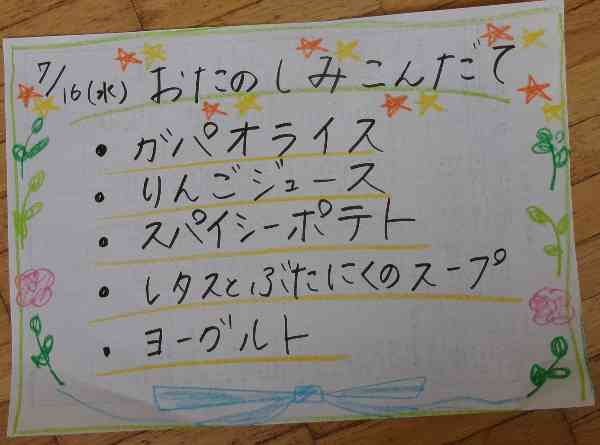 7/16(水) おたのしみこんだて
・ガパオライス
・りんごジュース
・スパイシーポテト
・レタスとぶたにくのスープ
・ヨーグルト